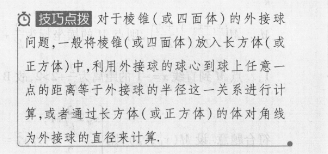 技巧点拨 对于棱锥(或四面体)的外接球
问题,一般将棱锥(或四面体)放入长方体(或
正方体)中,利用外接球的球心到球上任意一
点的距离等于外接球的半径这一关系进行计
算,或者通过长方体(或正方体)的体对角线
为外接球的直径来计算.